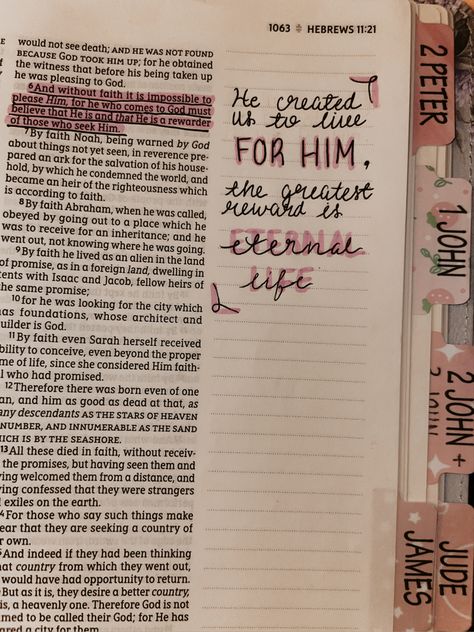 1063 HEBREWS 11:21
would not see death; AND HE WAS NOT FOUND
BECAUSE GOD TOOK HIM UP; for he obtained
the witness that before his being taken up
he was pleasing to God.
6And without faith it is impossible to
please Him, for he who comes to God must
believe that He is and that He is a rewarder
of those who seek Him.
7By faith Noah, being warned by God
about things not yet seen, in reverence pre-
pared an ark for the salvation of his house-
hold, by which he condemned the world, and
became an heir of the righteousness which
is according to faith.
8By faith Abraham, when he was called,
obeyed by going out to a place which he
was to receive for an inheritance; and he
went out, not knowing where he was going.
9By faith he lived as an alien in the land
of promise, as in a foreign land, dwelling in
tents with Isaac and Jacob, fellow heirs of
the same promise;
10for he was looking for the city which
has foundations, whose architect and
builder is God.
11By faith even Sarah herself received
ability to conceive, even beyond the proper
time of life, since she considered Him faith-
l who had promised.
12Therefore there was born even of one
an, and him as good as dead at that, as
any descendants AS THE STARS OF HEAVEN
NUMBER, AND INNUMERABLE AS THE SAND
HICH IS BY THE SEASHORE.
13All these died in faith, without receiv-
the promises, but having seen them and
ving welcomed them from a distance, and
ving confessed that they were strangers
exiles on the earth.
For those who say such things make
ear that they are seeking a country of
r own.
And indeed if they had been thinking
that country from which they went out,
would have had opportunity to return.
But as it is, they desire a better country,
is, a heavenly one. Therefore God is not
med to be called their God; for He has
He created
us to live
FOR HIM,
the greatest
reward is
eternal
life
2 PETER
1 JOHN
2 JOHN +
JUDE
JAMES